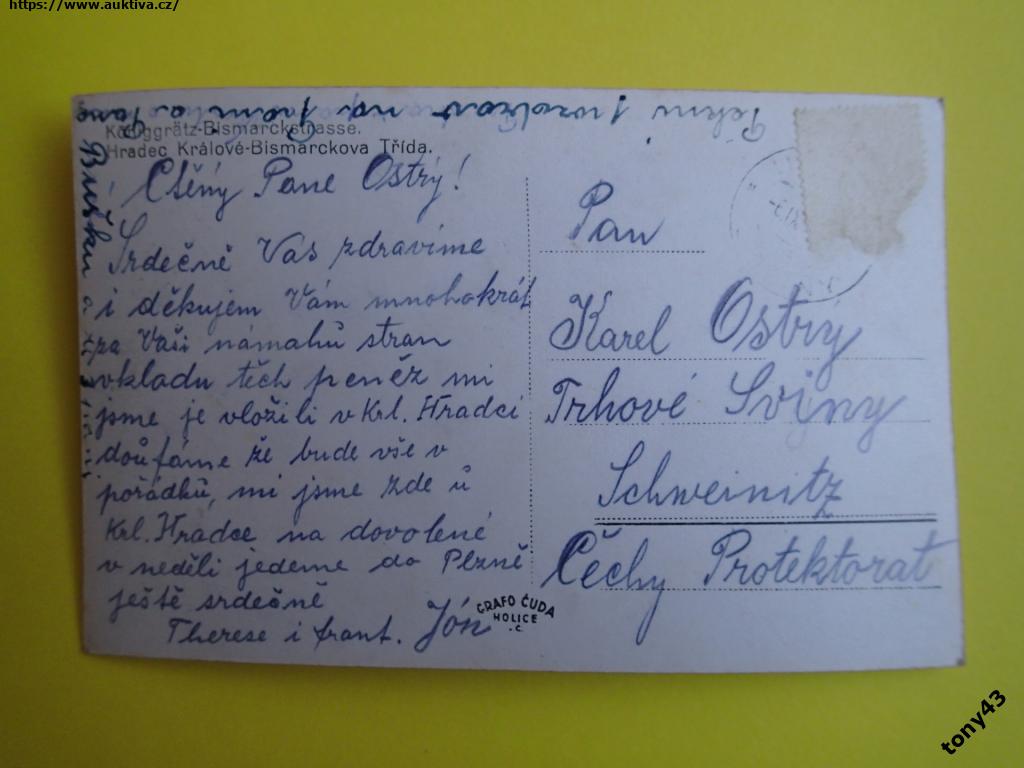 https://www.auktiva.cz/
Pekní pozdrav na
Königgrätz-Bismarckstrasse.
Hradec Králové-Bismarckova Třída.
Ctěný Pane Ostrý!
Srdečně Vas zdravíme
i děkujem Vám mnohokrát
za Vaši námahů stran
vkladu těch peněz mi
jsme je vložili v Krl. Hradci
doufáme že bude vše v
pořádků, mi jsme zde ú
Krl. Hradce na dovolené
v neděli jedeme do Plzně
ještě srdečně
Therese i frant. Jón
Pan
Karel Ostrý
Trhové Sviny
Schweinitz
Čechy Protektorat
GRAFO ČUDA
HOLICE
.C.
tony43